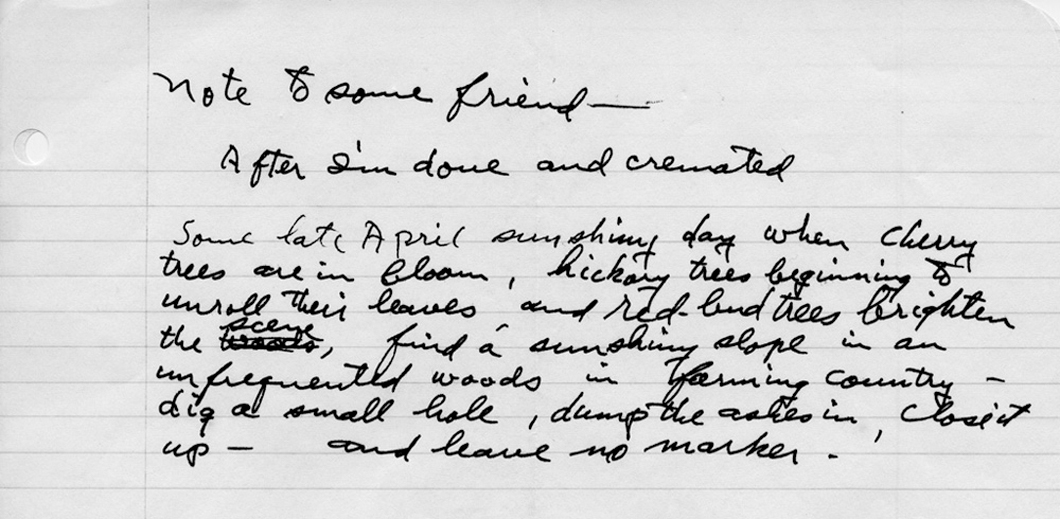 Note to some friend—
After I'm done and cremated
Some late April sunshiny day when cherry
trees are in bloom, hickory trees beginning to
unroll their leaves, and red-bud trees brighten
the scene, find a sunshiny slope in an
unfrequented woods in farming country –
dig a small hole, dump the ashes in, close it
up – and leave no marker.